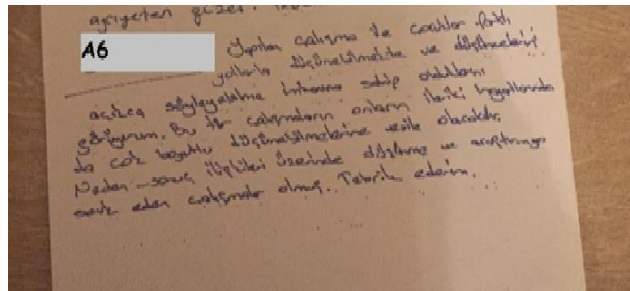 açıyeten güzel.
A6
Yapılan çalışma ile çocuklar farklı
yollarla düşünebilmekte ve düşüncelerini
açıkça söyleyebilme imkanına sahip oldukları
görüyorum. Bu tür çalışmaların onların ileriki hayatlarında
da çok boyutlu düşünebilmelerine vesile olacaktır.
Neden-sonuç ilişkileri üzerinde düşünme ve araştırmaya
sevk eden çalışmalar olmuş. Tebrik ederim.